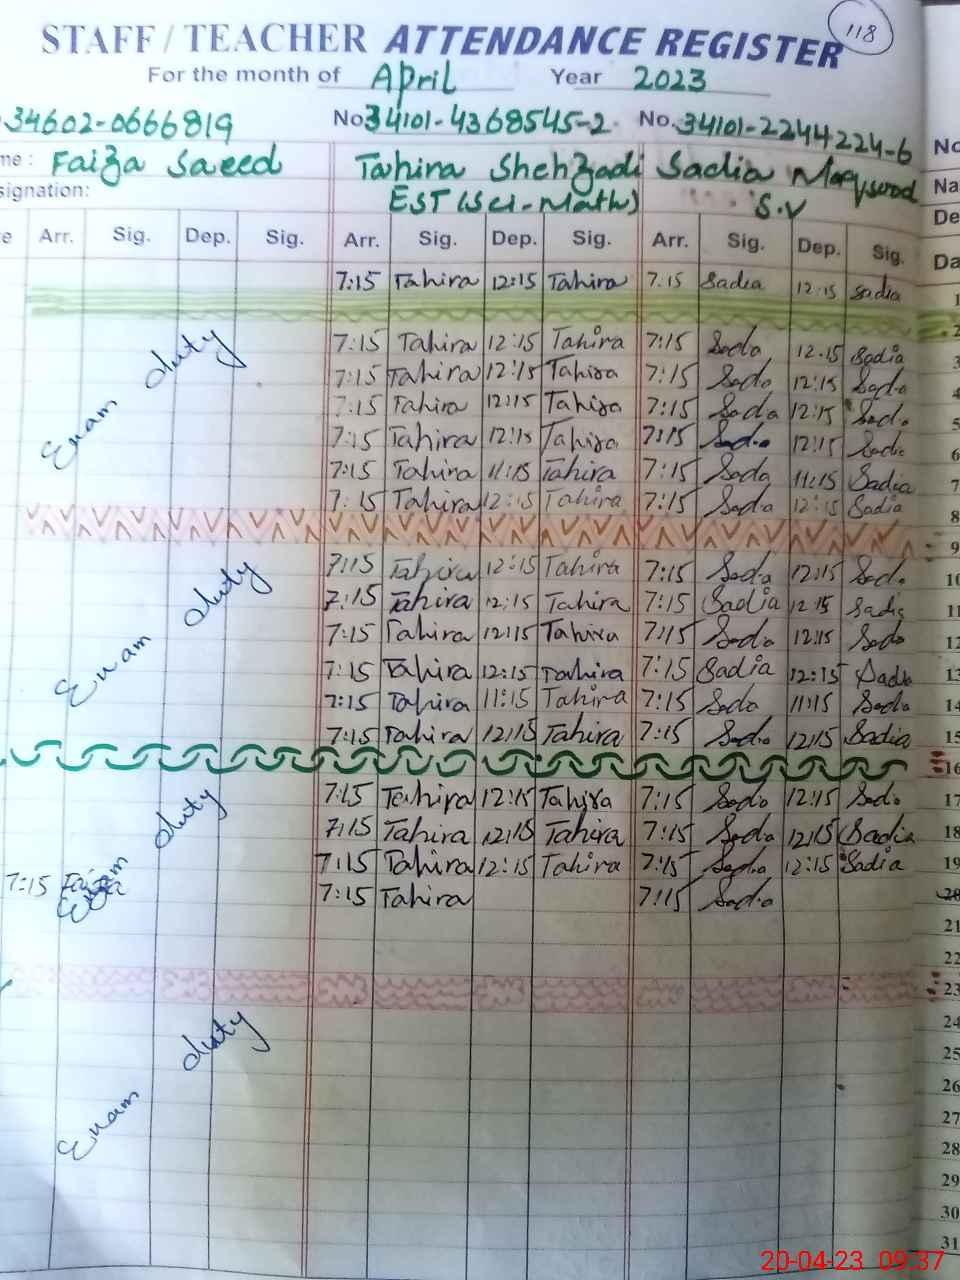 118
STAFF / TEACHER ATTENDANCE REGISTER
For the month of April Year 2023
34602-0666819 No 34101-4368545-2 No. 34101-2244224-6 No
me: Faiza Saeed Tahira Shehzadi Sadia Na
signation: EST (Sci-Math) S.V De
e Arr. Sig. Dep. Sig. Arr. Sig. Dep. Sig. Arr. Sig. Dep. Sig. Da
7:15 Tahira 12:15 Tahira 7.15 Sadia 12:15 Sadia 1
2
Exam duty
7:15 Tahira 12:15 Tahira 7:15 Sadia 12.15 Sadia 3
7:15 Tahira 12:15 Tahira 7:15 Sadia 12:15 Sadia 4
7:15 Tahira 12:15 Tahira 7:15 Sadia 12:15 Sadia 5
7:15 Tahira 12:15 Tahira 7:15 Sadia 12:15 Sadia 6
7:15 Tahira 11:15 Tahira 7:15 Sadia 11:15 Sadia 7
7:15 Tahira 12:15 Tahira 7:15 Sadia 12:15 Sadia 8
9
Exam duty
7:15 Tahira 12:15 Tahira 7:15 Sadia 12:15 Sadia 10
7:15 Tahira 12:15 Tahira 7:15 Sadia 12:15 Sadia 11
7:15 Tahira 12:15 Tahira 7:15 Sadia 12:15 Sadia 12
7:15 Tahira 12:15 Tahira 7:15 Sadia 12:15 Sadia 13
7:15 Tahira 11:15 Tahira 7:15 Sadia 11:15 Sadia 14
7:15 Tahira 12:15 Tahira 7:15 Sadia 12:15 Sadia 15
16
Exam duty
7:15 Tahira 12:15 Tahira 7:15 Sadia 12:15 Sadia 17
7:15 Tahira 12:15 Tahira 7:15 Sadia 12:15 Sadia 18
7:15 Tahira 12:15 Tahira 7:15 Sadia 12:15 Sadia 19
7:15 Faiza 7:15 Tahira 7:15 Sadia 20
21
22
23
Exam duty
24
25
26
27
28
29
30
31
20-04-23 09:37